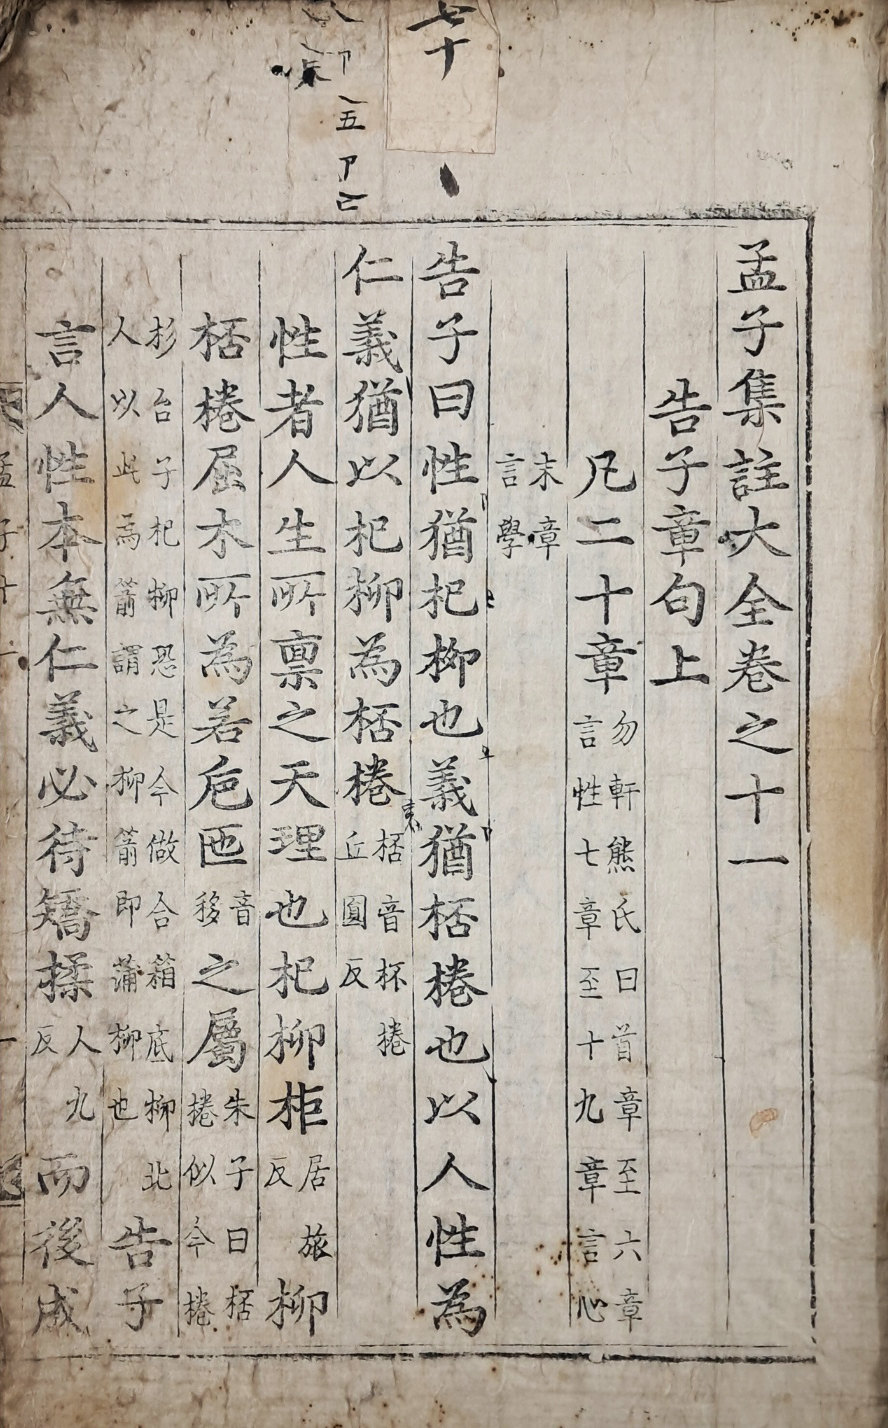 七十
五
孟子集註大全卷之十一
告子章句上
凡二十章勿軒熊氏曰首章至六章言性七章至十九章言心
末章言學
告子曰性猶杞柳也義猶桮棬也以人性爲
仁義猶以杞柳爲桮棬桮音杯棬丘圓反
性者人生所禀之天理也杞柳柜居旅反柳
桮棬屈木所爲若巵匜音移之屬朱子曰桮棬似今棬
杉台子杞柳恐是今做合箱底柳北人以此爲箭謂之柳箭即蒲柳也告子
言人性本無仁義必待矯揉人九反而後成